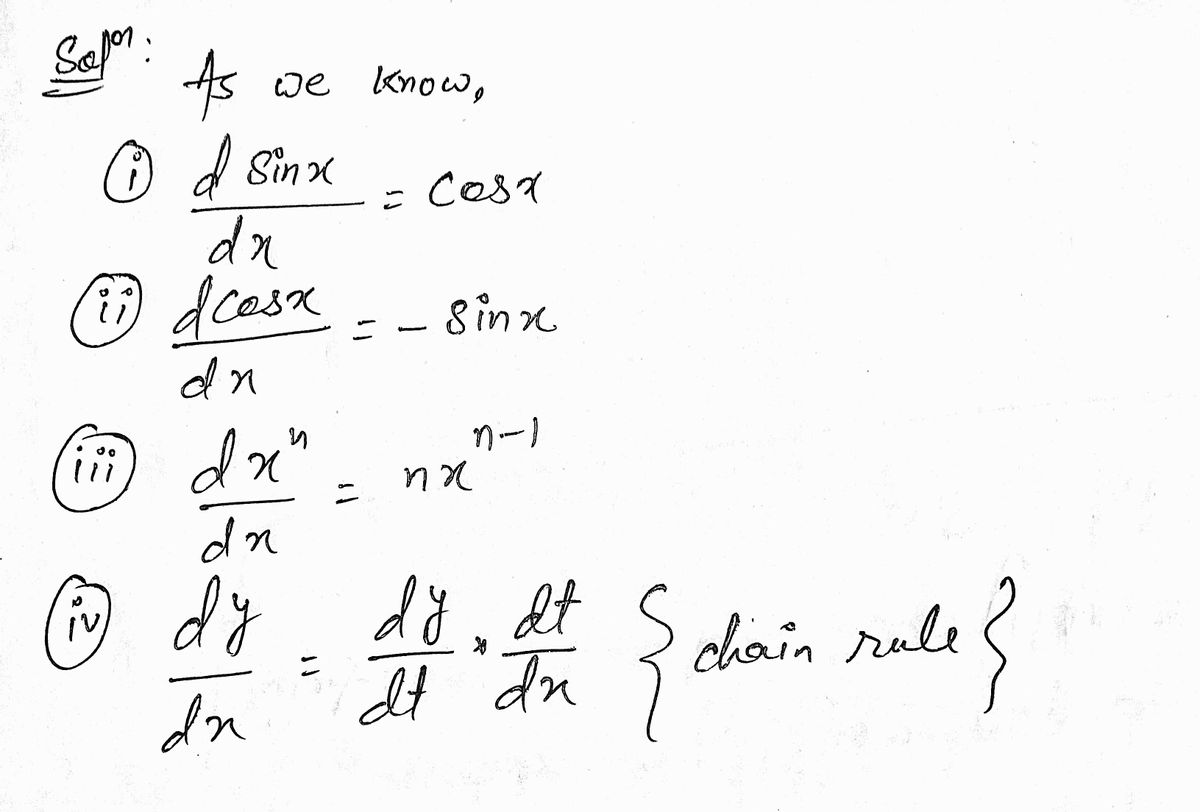 Solⁿ:
As we know,
(i) d sinx/dx = cosx
(ii) d cosx/dx = - sinx
(iii) dxⁿ/dx = nxⁿ⁻¹
(iv) dy/dx = dy/dt × dt/dx {chain rule}